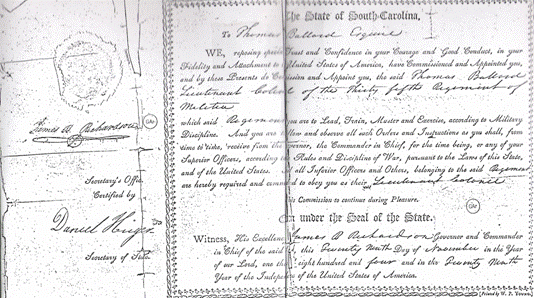 The State of South-Carolina,
To Thomas Ballard Esquire
WE, reposing special Trust and Confidence in your Courage and Good Conduct, in your
Fidelity and Attachment to United States of America, have Commissioned and Appointed you,
and by these Presents do Commission and Appoint you, the said Thomas Ballard
Lieutenant Colonel of the Thirty fifth Regement of
Militia
which said Regement you are to Lead, Train, Muster and Exercise, according to Military
Discipline. And you are to follow and observe all such Orders and Instructions as you shall, from
time to time, receive from the Governor, the Commander in Chief, for the time being, or any of your
Superior Officers, according to Rules and Discipline of War, pursuant to the Laws of this State,
and of the United States. all inferior Officers and Others, belonging to the said Regement
are hereby required and to obey you as their Lieutenant Colonel
This Commission to continue during Pleasure.
under the Seal of the State.
Witness, His Excellency James B Richardson Governor and Commander
in Chief of the said this Twenty Ninth Day of November in the Year
of our Lord, one eight hundred and four and in the Twenty Ninth
Year of the Independence of the United States of America.
James B Richardson
Secretary's Office
Certified by
Daniel Huger
Secretary of State
by W. P. Young